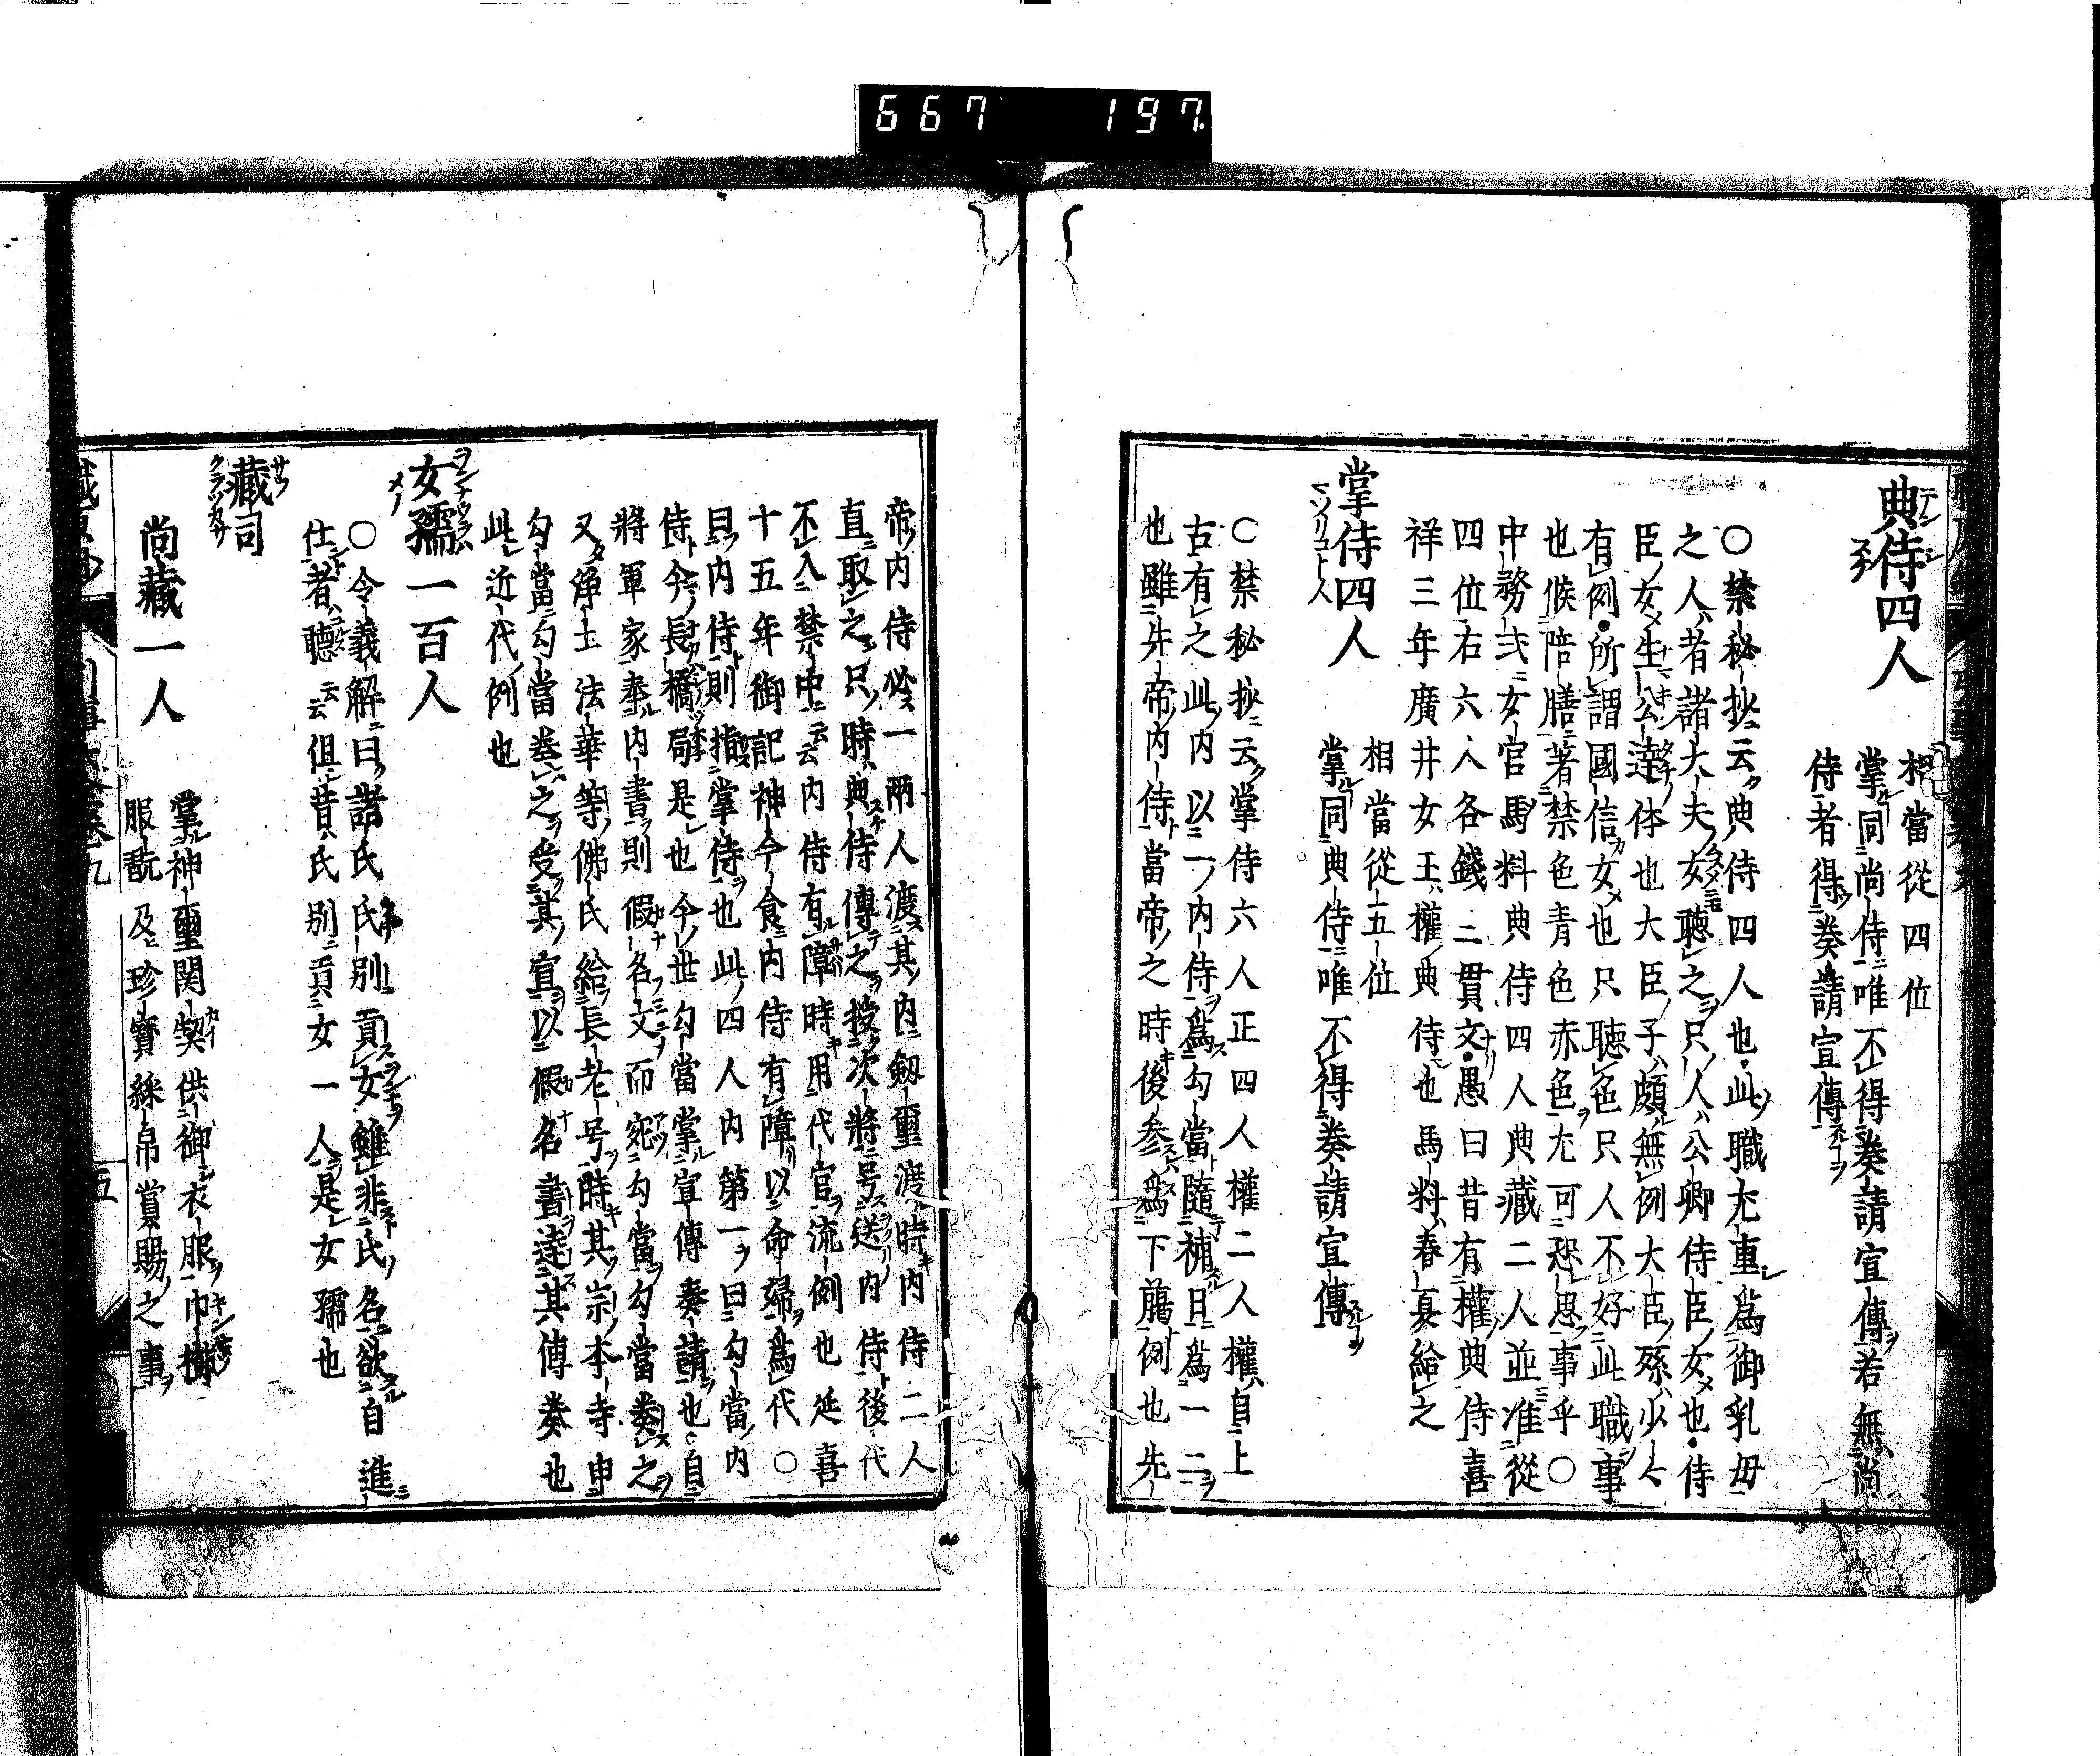 667 197
典侍四人
相當從四位
掌同尚侍唯不得奏請宣傳若無尚
侍者得奏請宣傳
〇禁秘抄云典侍四人也此職尤重爲御乳母
之人者諸大夫女聽之只人公卿侍臣女也侍
臣女生公達体也大臣子頗無例大臣孫少々
有例所謂國信女也只聽色只人不好此職事
也候陪膳著禁色青色赤色尤可恐思事乎〇
中務式女官馬料典侍四人典藏二人並准從
四位右六人各錢二貫文愚曰昔有權典侍喜
祥三年廣井女王權典侍也馬料春夏給之
掌侍四人
マツリコト人
相當從五位
掌同典侍唯不得奏請宣傳
〇禁秘抄云掌侍六人正四人權二人權自上
古有之此内以一ノ内侍爲勾當隨補日爲一二
也雖先帝内侍當帝之時後參爲下﨟例也先
帝内侍必一兩人渡其内劔璽渡時内侍二人
直取之只時典侍傳之授次將号送内侍後代
不入禁中云云内侍有障時用代官流例也延喜
十五年御記神今食内侍有障以命婦爲代〇
曰内侍則指掌侍也此四人内第一曰勾當内
侍今長橋局是也今世勾當掌宣傳奏請也自
將軍家奉内書則假名文而宛勾當勾當奏之
又淨土法華等佛氏給長老号時其宗本寺申
勾當勾當奏之受其宣以假名書達其傳奏也
此近代例也
女孺一百人
〇令義解曰諸氏氏別貢女雖非氏名欲自進
仕者聽云云但昔氏別貢女一人是女孺也
藏司
クラツカサ
尚藏一人
掌神璽関契供御衣服巾櫛
服翫及珍寶綵帛賞賜之事
五